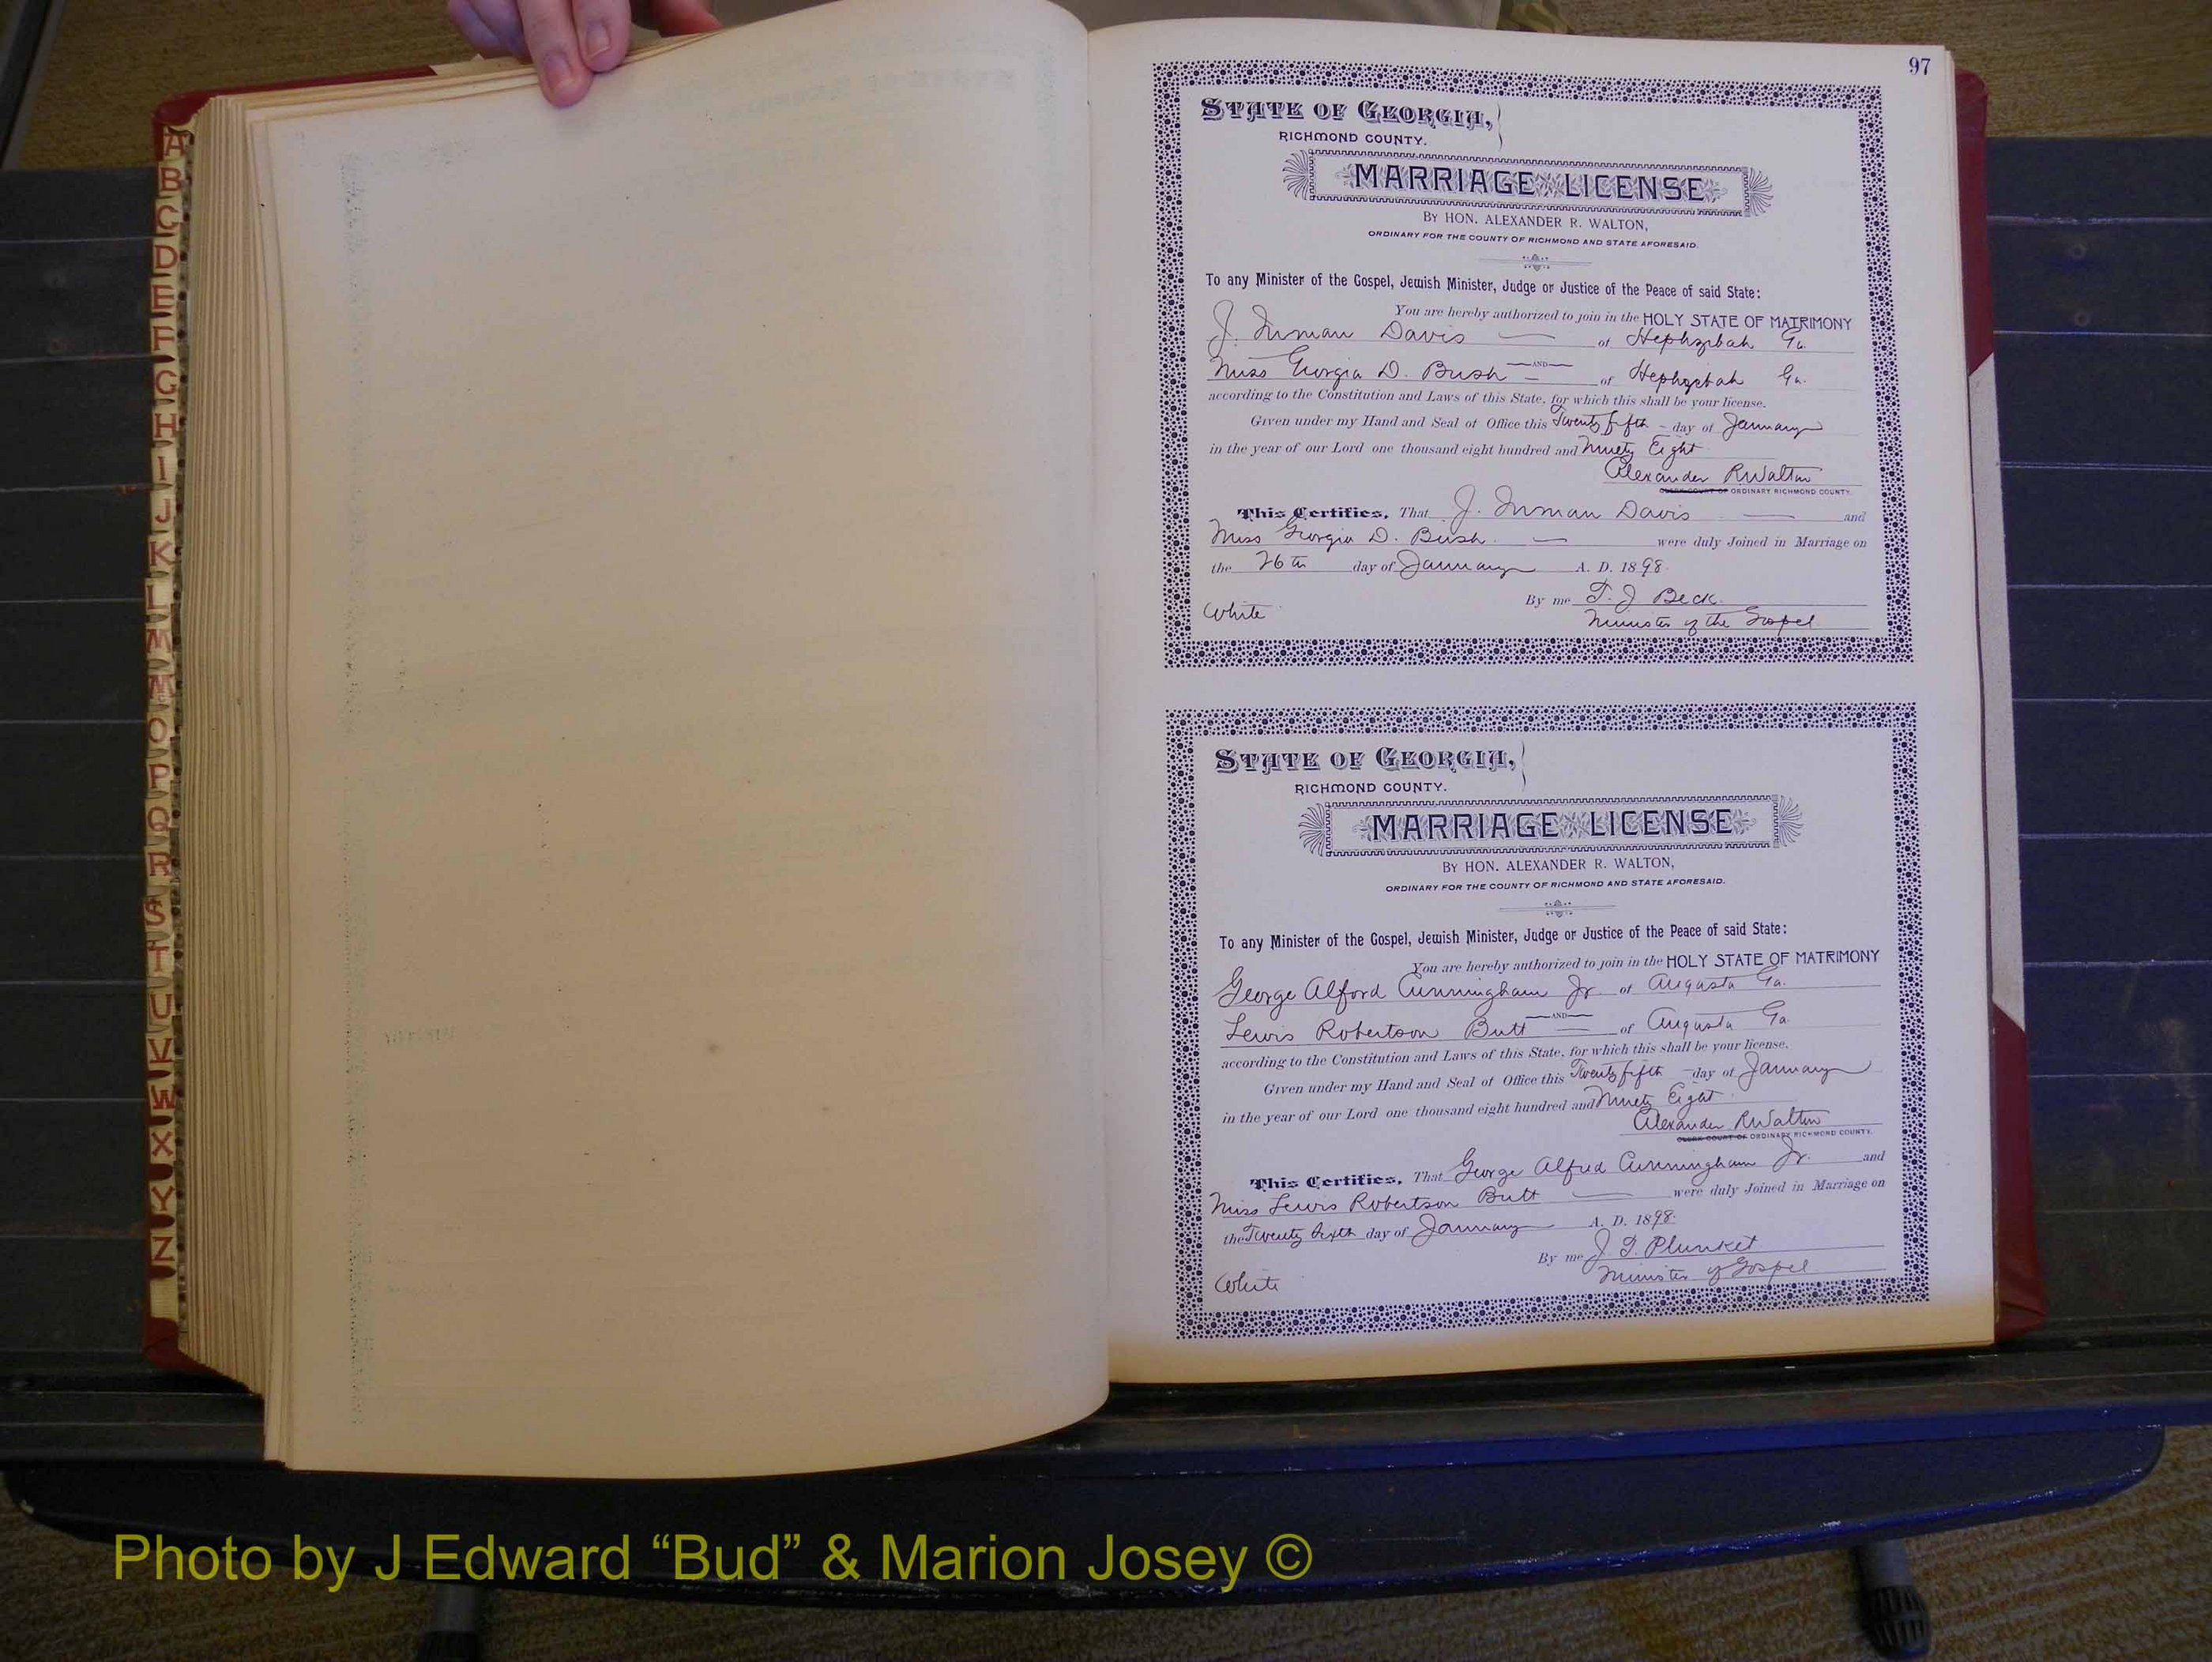 A
B
C
D
E
F
G
H
I
J
K
L
M
M
O
P
Q
R
S
T
U
V
W
X
Y
Z
97
STATE OF GEORGIA,
RICHMOND COUNTY.
MARRIAGE LICENSE
BY HON. ALEXANDER R. WALTON,
ORDINARY FOR THE COUNTY OF RICHMOND AND STATE AFORESAID.
To any Minister of the Gospel, Jewish Minister, Judge or Justice of the Peace of said State:
You are hereby authorized to join in the HOLY STATE OF MATRIMONY
J. Inman Davis of Hephzibah Ga.
AND
Miss Georgia D. Bush of Hephzibah Ga.
according to the Constitution and Laws of this State, for which this shall be your license.
Given under my Hand and Seal of Office this Twenty fifth day of January
in the year of our Lord one thousand eight hundred and Ninety Eight
Alexander R Walton
CLERK COURT OF ORDINARY RICHMOND COUNTY.
This Certifies, That J. Inman Davis and
Miss Georgia D. Bush were duly Joined in Marriage on
the 26th day of January A. D. 1898.
By me T. J Beck.
White Minister of the Gospel.
STATE OF GEORGIA,
RICHMOND COUNTY.
MARRIAGE LICENSE
BY HON. ALEXANDER R. WALTON,
ORDINARY FOR THE COUNTY OF RICHMOND AND STATE AFORESAID.
To any Minister of the Gospel, Jewish Minister, Judge or Justice of the Peace of said State:
You are hereby authorized to join in the HOLY STATE OF MATRIMONY
George Alford Cunningham Jr of Augusta Ga.
AND
Lewis Robertson Butt of Augusta Ga.
according to the Constitution and Laws of this State, for which this shall be your license.
Given under my Hand and Seal of Office this Twenty fifth day of January
in the year of our Lord one thousand eight hundred and Ninety Eight.
Alexander R Walton
CLERK COURT OF ORDINARY RICHMOND COUNTY.
This Certifies, That George Alfred Cunningham Jr. and
Miss Lewis Robertson Butt were duly Joined in Marriage on
the Twenty Sixth day of January A. D. 1898.
By me J. T. Plunket
White Minister of Gospel
Photo by J Edward “Bud” & Marion Josey ©